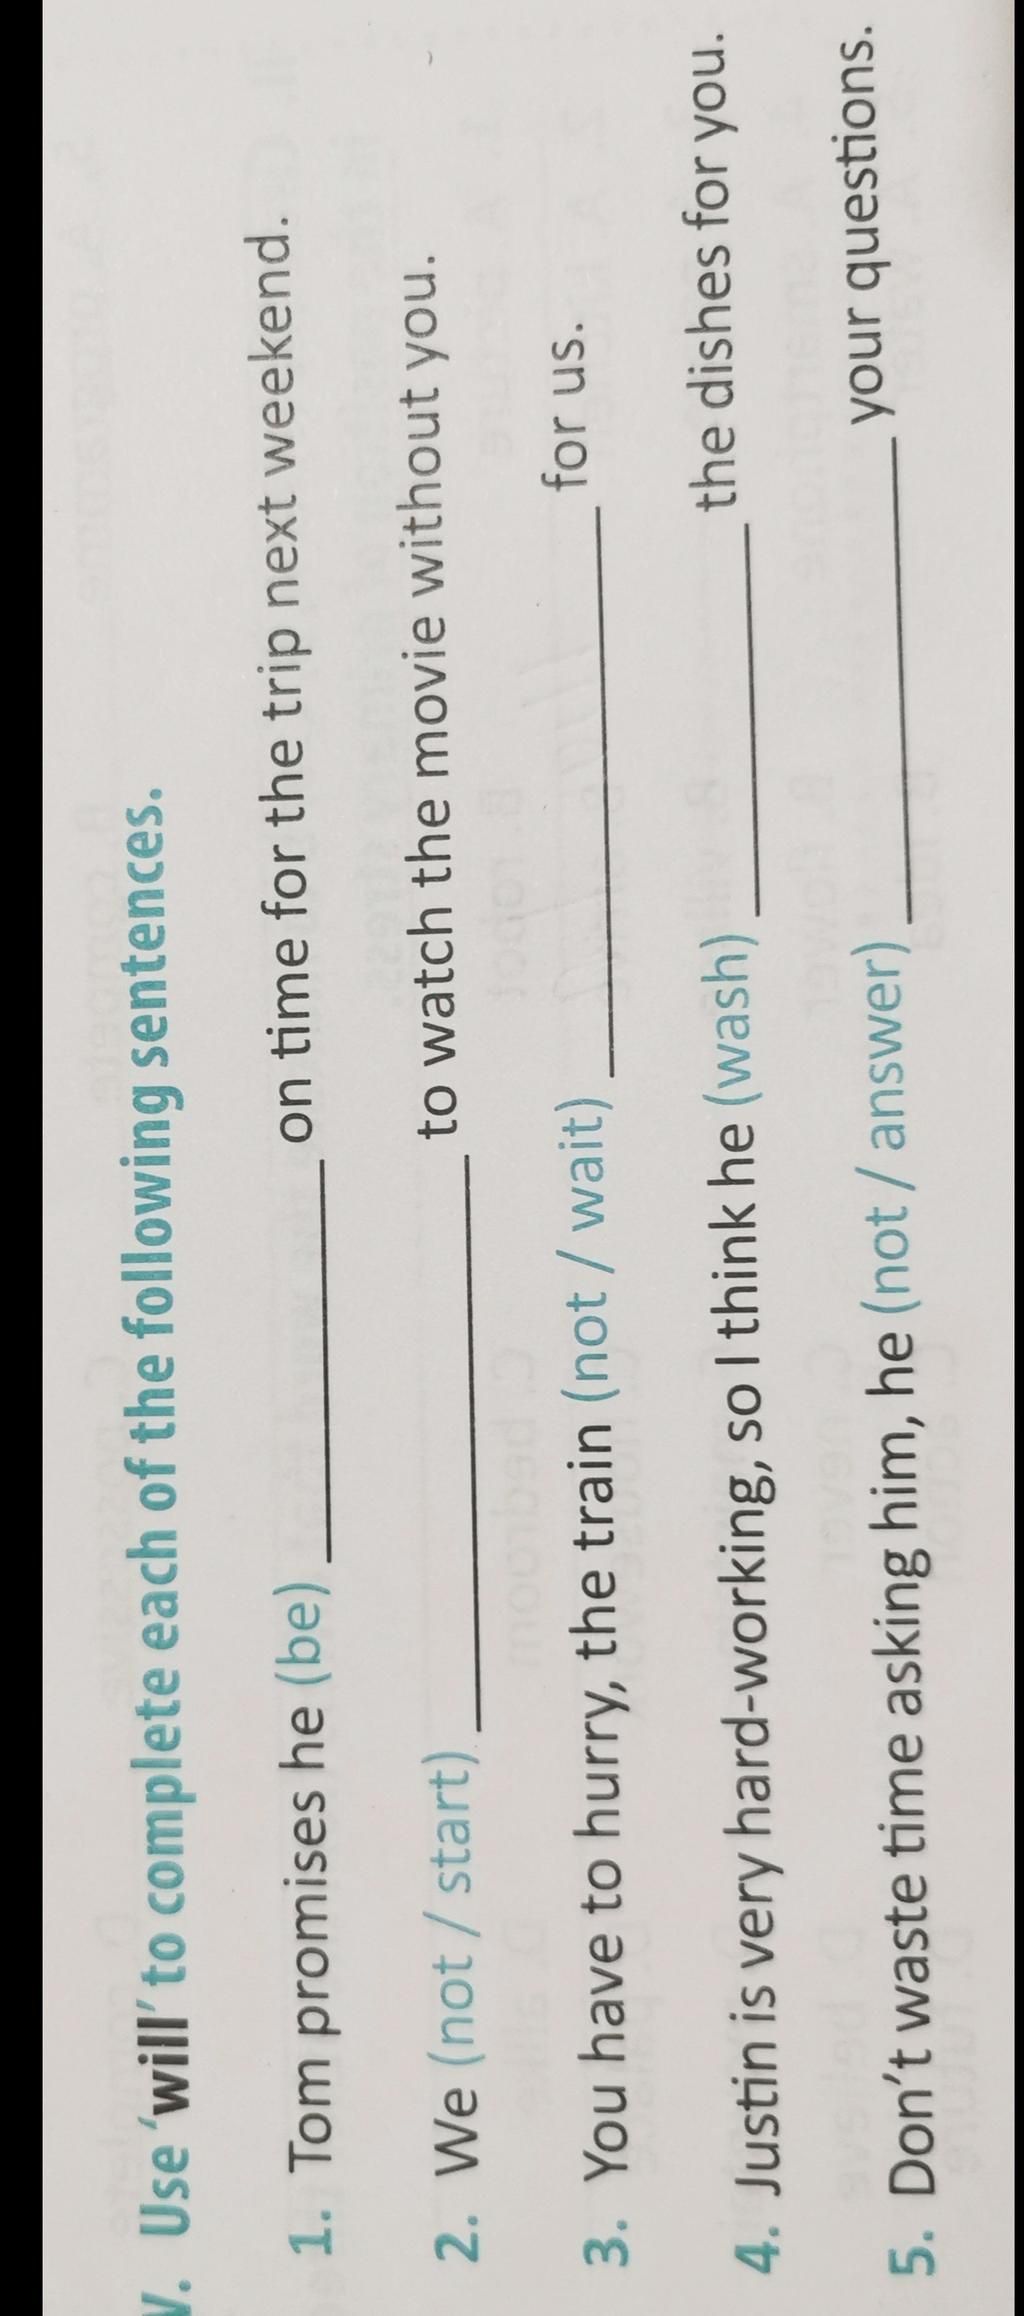 V. Use 'will' to complete each of the following sentences.
1. Tom promises he (be) ____________ on time for the trip next weekend.
2. We (not / start) ____________ to watch the movie without you.
3. You have to hurry, the train (not / wait) ____________ for us.
4. Justin is very hard-working, so I think he (wash) ____________ the dishes for you.
5. Don't waste time asking him, he (not / answer) ____________ your questions.